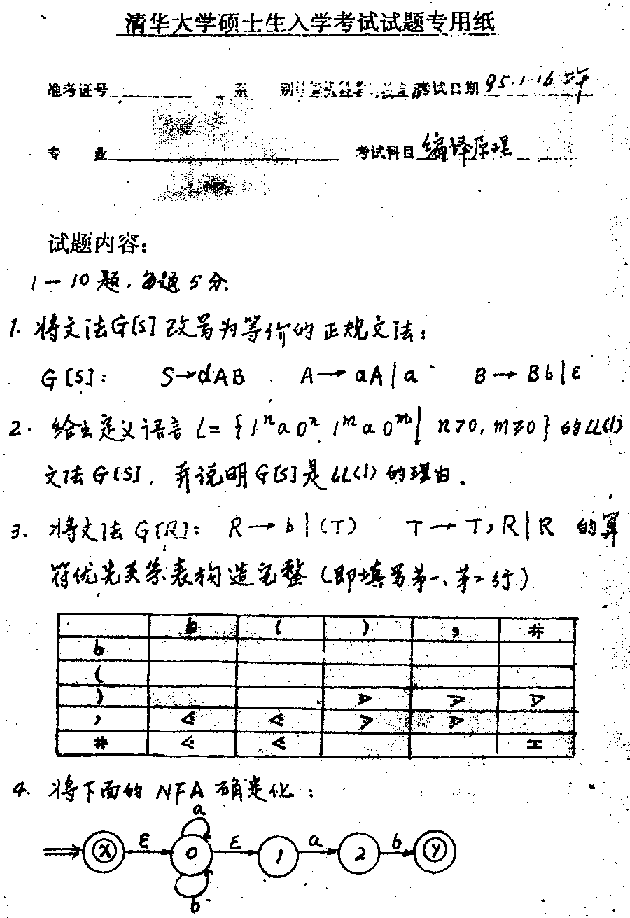 清华大学硕士生入学考试试题专用纸
准考证号 系 别 考试日期 95.1.16
专 业 考试科目 编译原理
试题内容:
1—10题,每题5分.
1. 将文法G[S]改写为等价的正规文法:
G[S]: S→dAB A→aA|a B→Bb|ε
2. 给出定义语言 L={1ⁿa0ⁿ 1ᵐa0ᵐ| n>0, m≥0}的LL(1)
文法G[S], 并说明G[S]是LL(1)的理由.
3. 将文法G[R]: R→b|(T) T→T,R|R 的算
符优先关系表构造完整(即填写第一、第二行)
b ( ) , #
b
(
) ⋗ ⋗ ⋗
, ⋖ ⋖ ⋗ ⋗
# ⋖ ⋖ =
4. 将下面的NFA确定化:
a
X ε 0 ε 1 a 2 b Y
b